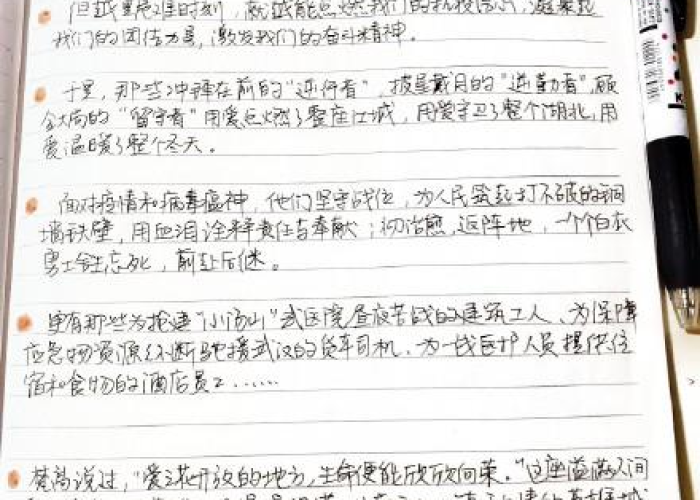 但越是艰难时刻，就越能点燃我们的抗疫信心，凝聚起
我们的团结力量，激发我们的奋斗精神。
于是，那些冲锋在前的“逆行者”，披星戴月的“逆勤者”，顾
全大局的“留守者”用爱点燃了整座江城，用爱守卫了整个湖北，用
爱温暖了整个冬天。
面对疫情和病毒瘟神，他们坚守战位，为人民筑起打不破的铜
墙铁壁，用血泪诠释责任与奉献；初治愈，返阵地，一个个白衣
勇士舍生忘死，前赴后继。
更有那些为抢建“小汤山”式医院昼夜苦战的建筑工人、为保障
应急物资源源不断驰援武汉的货车司机、为一线医护人员提供住
宿和食物的酒店员工……
梵高说过，“爱之花开放的地方，生命便能欣欣向荣。”这座溢满人间